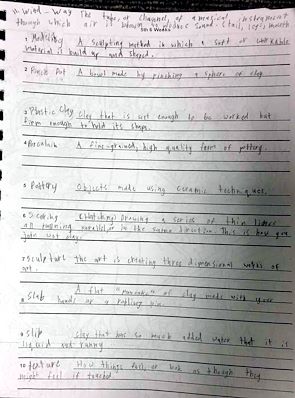 Wind - Way the tube, or channel, of a musical instrument
through which air is blown to produce sound. (tail, legs, mouth
5th 6 Weeks
1 Modeling A sculpting method in which a soft or workable
material is build up and shaped.
2 Pinch Pot A bowl made by pinching a sphere of clay.
3 Plastic Clay clay that is wet enough to be worked but
firm enough to hold its shape.
4 Porcelain A fine-grained, high quality form of pottery.
5 Pottery Objects made using ceramic techniques.
6 Scoring drawing a series of thin lines
all running parallel or in the same direction. This is how you
join wet clay.
7 sculpture the art is creating three dimensional works of
art.
8 Slab A flat "pancake" of clay made with your
hands or a rolling pin.
9 slip clay that has so much added water that it is
liquid and runny
10 texture How things feel, or look as though they
might feel if touched